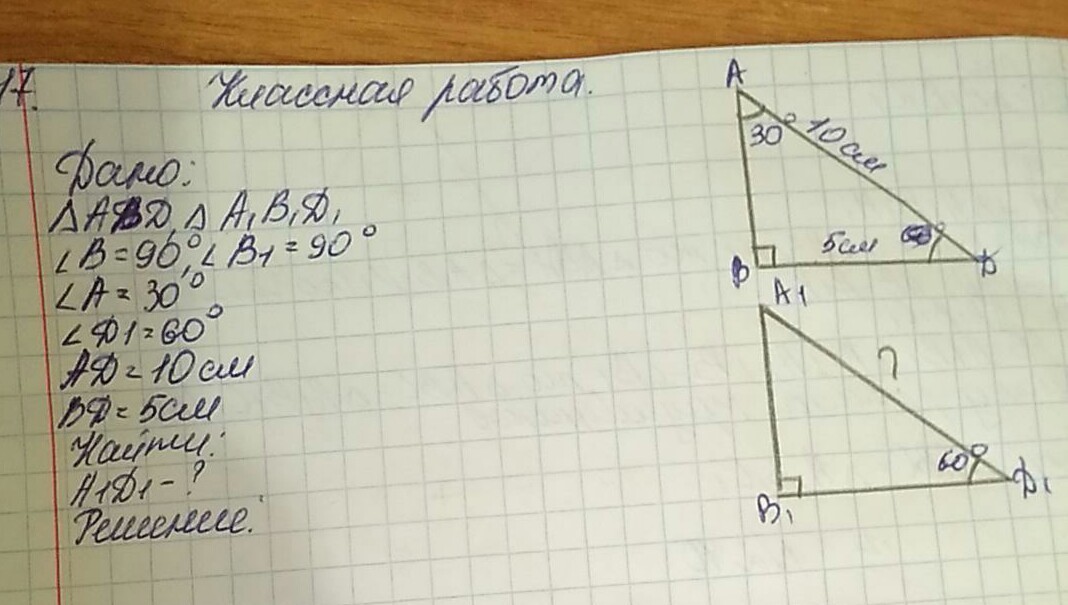 17. Классная работа.
Дано:
△ABD, △A₁B₁D₁
∠B=90°, ∠B₁=90°
∠A=30°
∠D1=60°
AD=10см
BD=5см
Найти:
A1D1-?
Решение:
A
30°
10см
5см
B
D
A1
?
60°
B₁
D₁